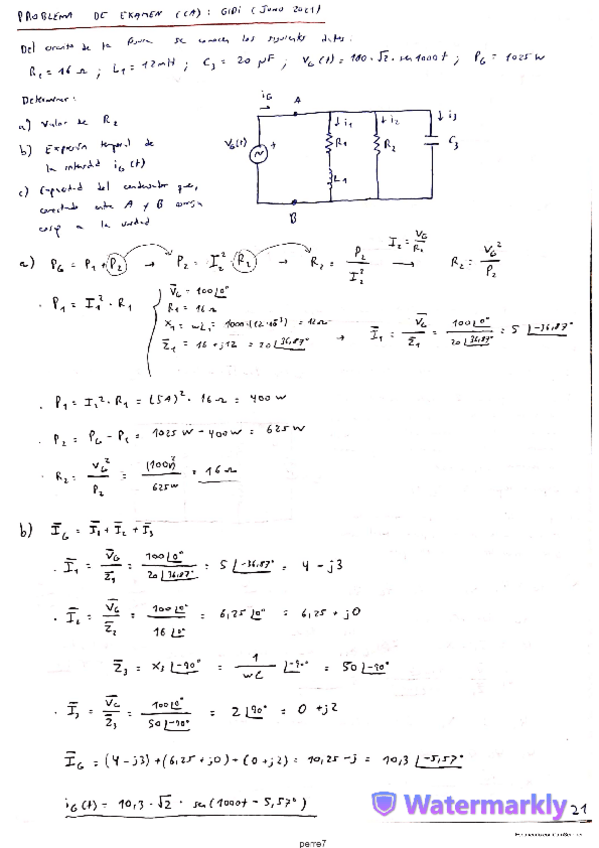 PROBLEMA DE EXAMEN (CA): GIDI (JUNIO 2021)
Del circuito de la figura se conocen los siguientes datos:
R₁ = 16 Ω ; L₁ = 12mH ; C₃ = 20 μF ; V_G(t) = 100·√2·sen1000t ; P_G = 1025 W
Determinar:
a) Valor de R₂
b) Expresión temporal de
la intensidad i_G(t)
c) Capacidad del condensador que,
conectado entre A y B consiga
cosφ a la unidad
i_G A
V_G(t) + ↓i₁ R₁ L₁ ↓i₂ R₂ ↓i₃ C₃
B
a) P_G = P₁ + P₂ → P₂ = I₂² · R₂ → R₂ = P₂ / I₂² I₂ = V_G / R₂ → R₂ = V_G² / P₂
· P₁ = I₁² · R₁
V̄_G = 100∠0°
R₁ = 16Ω
X₁ = ωL₁ = 1000·(12·10⁻³) = 12Ω
Z̄₁ = 16 + j12 = 20∠36,87° → Ī₁ = V̄_G / Z̄₁ = 100∠0° / 20∠36,87° = 5∠-36,87°
· P₁ = I₁² · R₁ = (5A)² · 16Ω = 400W
· P₂ = P_G - P₁ = 1025W - 400W = 625W
· R₂ = V_G² / P₂ = (100V)² / 625W = 16Ω
b) Ī_G = Ī₁ + Ī₂ + Ī₃
· Ī₁ = V̄_G / Z̄₁ = 100∠0° / 20∠36,87° = 5∠-36,87° = 4 - j3
· Ī₂ = V̄_G / Z̄₂ = 100∠0° / 16∠0° = 6,25∠0° = 6,25 + j0
Z̄₃ = X₃∠-90° = 1 / ωC ∠-90° = 50∠-90°
· Ī₃ = V̄_G / Z̄₃ = 100∠0° / 50∠-90° = 2∠90° = 0 + j2
Ī_G = (4 - j3) + (6,25 + j0) + (0 + j2) = 10,25 - j = 10,3∠-5,57°
i_G(t) = 10,3 · √2 · sen(1000t - 5,57°)
Watermarkly
21
perre7